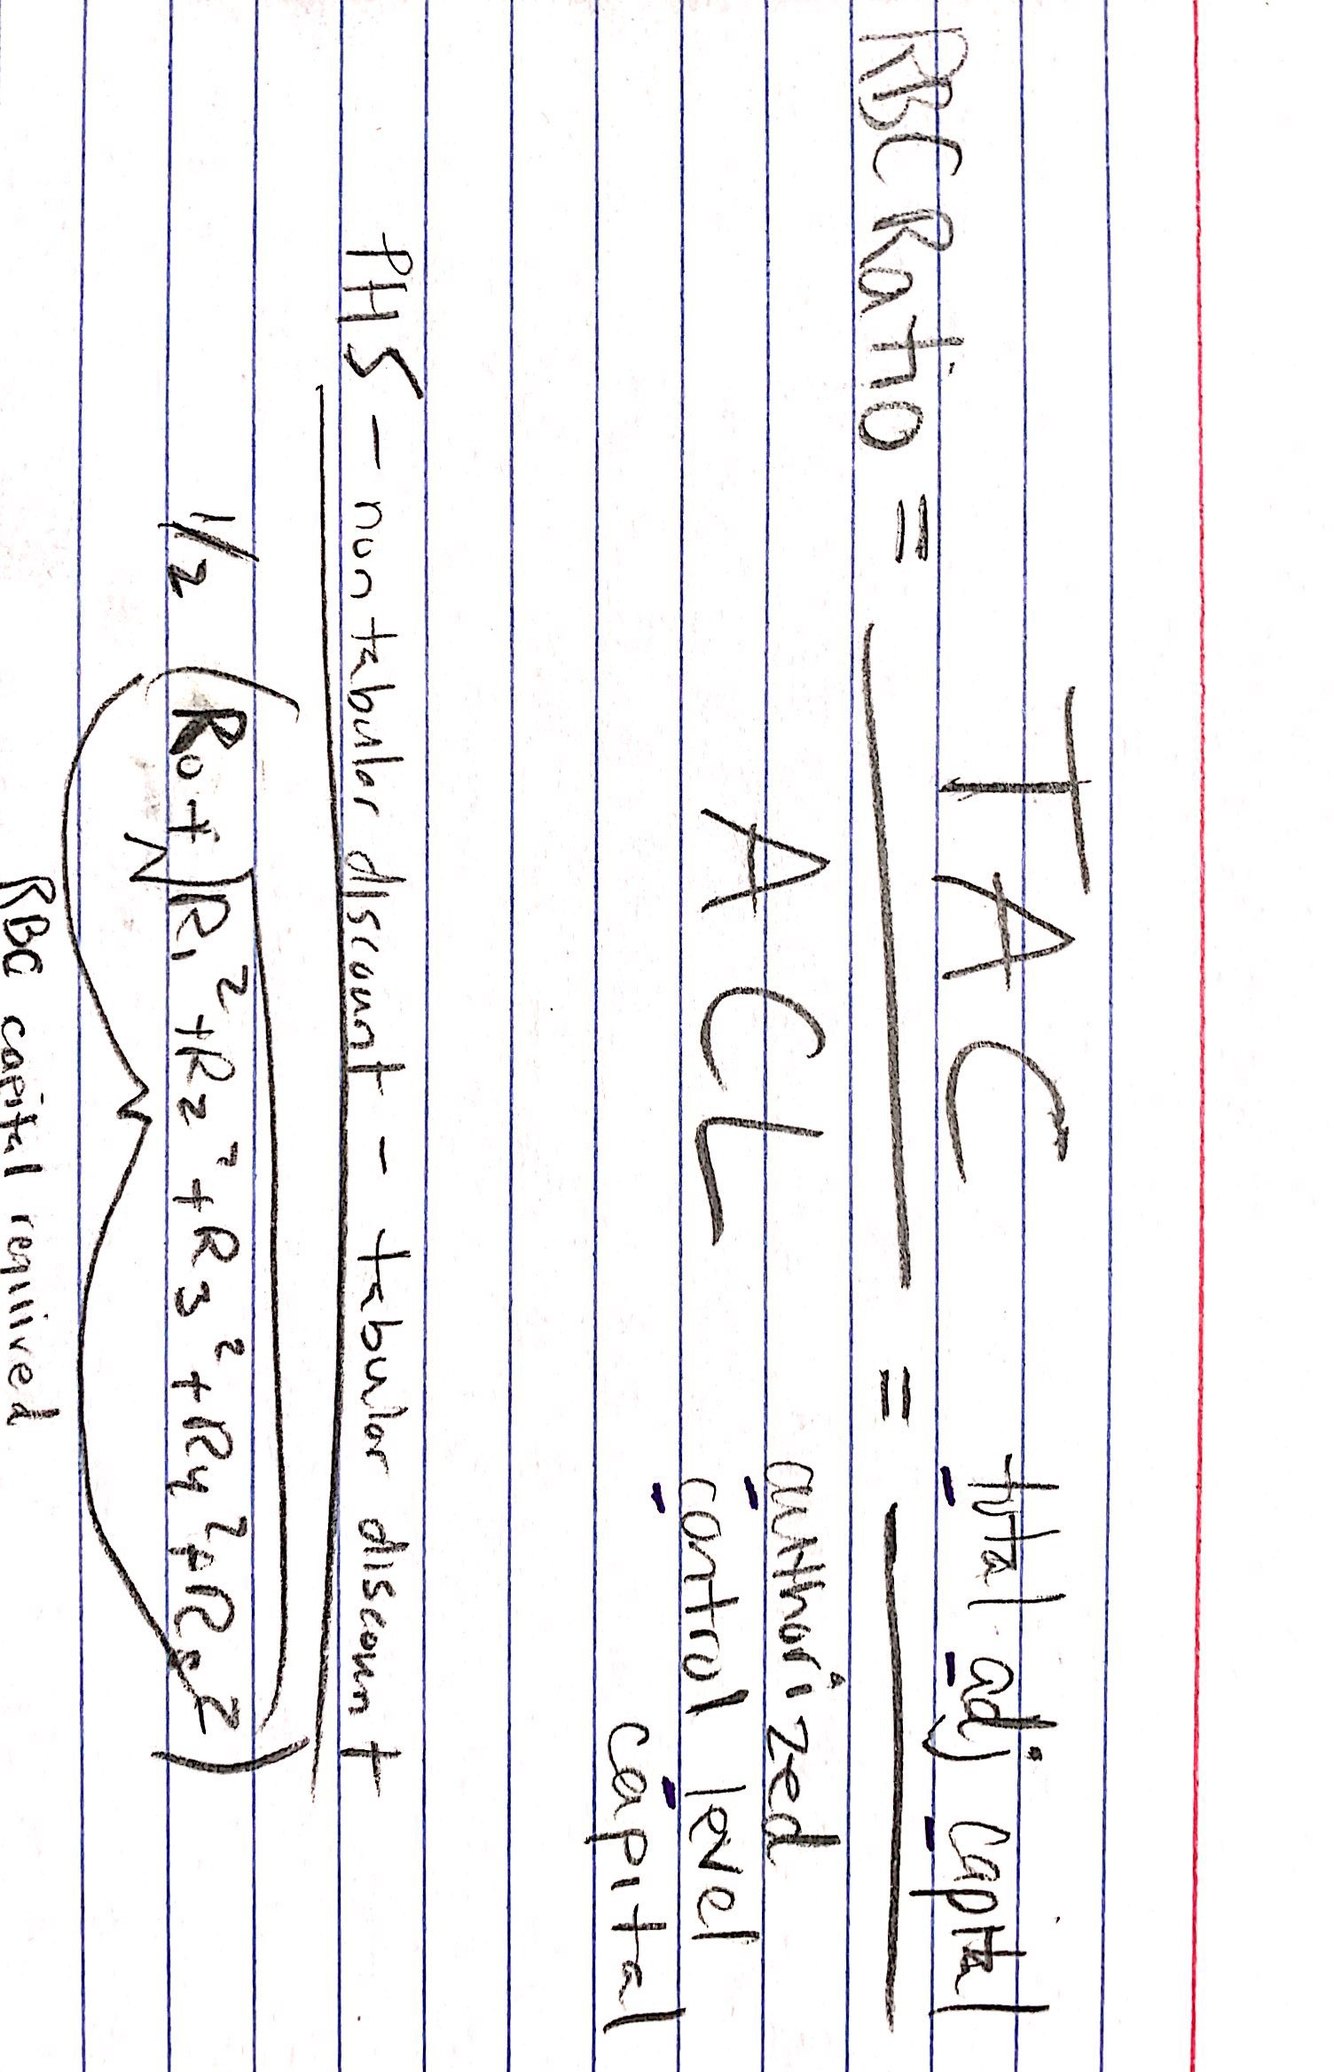 TAC total adj capital
RBC Ratio = =
ACL authorized
control level
capital
PHS - non tabular discount - tabular discount
1/2 (R0 + √R1² + R2² + R3² + R4² + R²)
RBC capital required